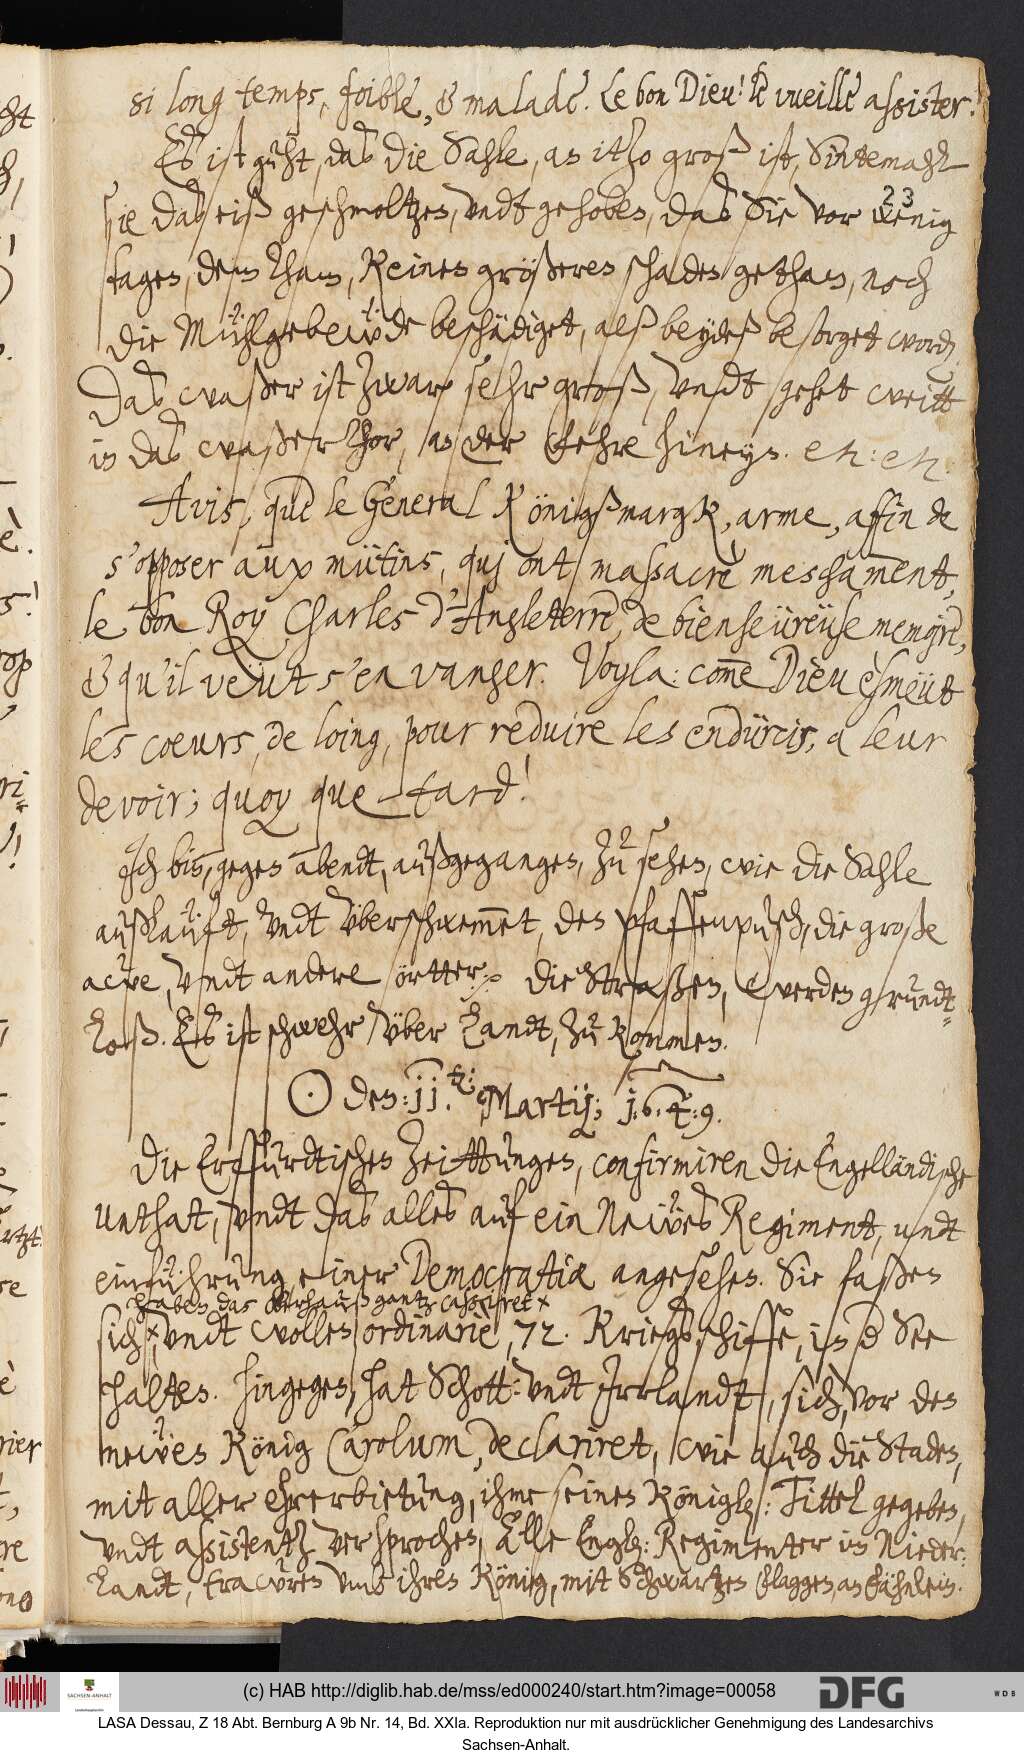 si long temps, foible, & malade. Le bon Dieu! le vueille assister!
Es ist guht, das die Sahle, an itzo groß ist, Sintemahl
23
sie das eiß geschmoltzen, undt gehoben, das Sie vor wenig
tagen, dem tham, keinen größeren schaden gethan, noch
die Mühlgebeüde beschädiget, alß beydeß besorget word(en)
Das waßer ist zwar sehr groß, undt gehet weitt
in das waßerthor, an der Fehre hineyn. etc: etc.
Avis, que le General Königßmargk, arme, affin de
s'opposer aux mütins, quj ont massacrè meschament,
le bon Roy Charles d'Angleterre, de bienheüreüse memoire,
& qu'il veut s'en vanger. Voyla: come Dieu esmeüt
les coeurs, de loing, pour reduire les endürcis, a leur
devoir; quoy que tard!
Ich bin, gegen abendt, außgegangen, zu sehen, wie die Sahle
außläuft, undt überschwemmet, den pfaffenpusch, die große
awe, undt andere örtter. Die Straßen, werden grundt-
loß. Es ist schwehr über Landt, zu kommen.
☉ den: 11. Martij; 1649.
Die Erffurdtischen Zeittungen, confirmiren die Engelländische
unthat, undt das alles auf ein Neües Regiment, undt
einführung einer Democratiæ angesehen. Sie faßen
haben das Oberhauß gantz cassiret ×
sich ×, undt wollen ordinariè, 72. Kriegsschiffe, in d(er) See
halten. Hingegen, hat Schott- undt Irrlandt, sich, vor den
neüen König Carolum, declariret, wie auch die Staden,
mit aller ehrerbietung, ihme seinen Königl: Tittel gegeben,
undt assistentz versprochen, Alle Engl: Regimenter in Nieder-
landt, trawren umb ihren König, mit Schwartzen flaggen, an fähnlein.
(c) HAB http://diglib.hab.de/mss/ed000240/start.htm?image=00058
SACHSEN-ANHALT
DFG
WDB
LASA Dessau, Z 18 Abt. Bernburg A 9b Nr. 14, Bd. XXIa. Reproduktion nur mit ausdrücklicher Genehmigung des Landesarchivs
Sachsen-Anhalt.